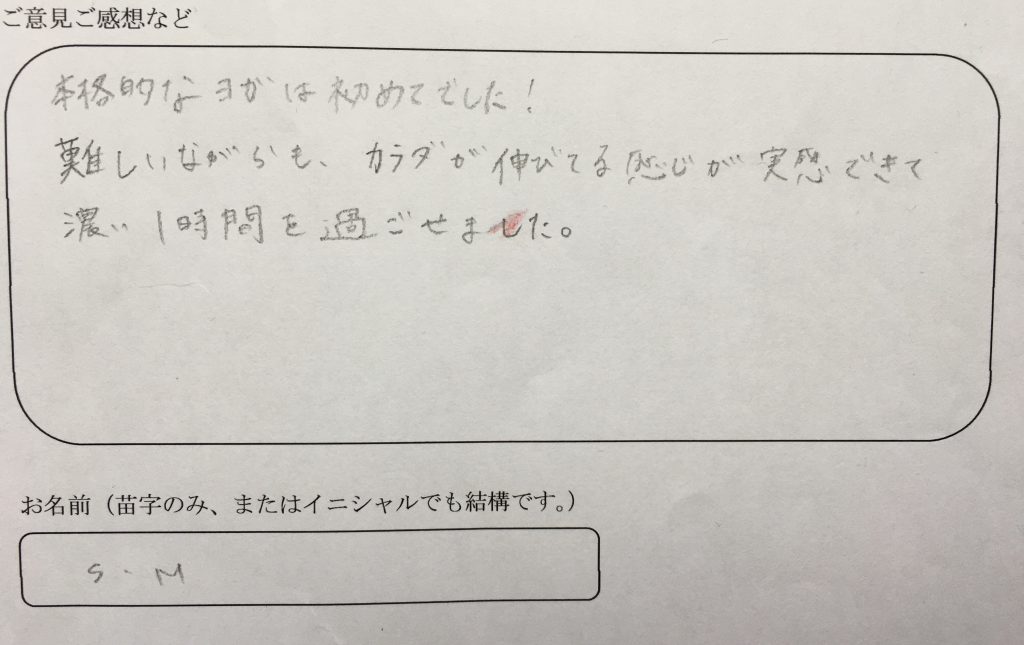 ご意見ご感想など
本格的なヨガは初めてでした!
難しいながらも、カラダが伸びてる感じが実感できて
濃い1時間を過ごせました。
お名前(苗字のみ、またはイニシャルでも結構です。)
S・M